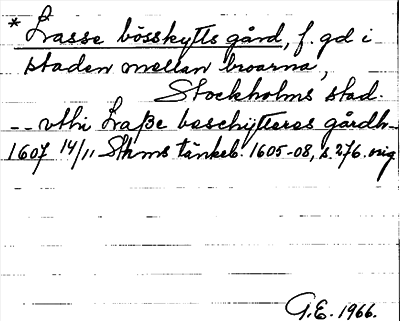 * Lasse bösskytts gård, f. gd i
staden mellan broarna,
Stockholms stad.
-- vthi Laße beschytteres gårdh--
1607 14/11 Sthms tänkeb. 1605-08, s. 276. orig
G.E. 1966.